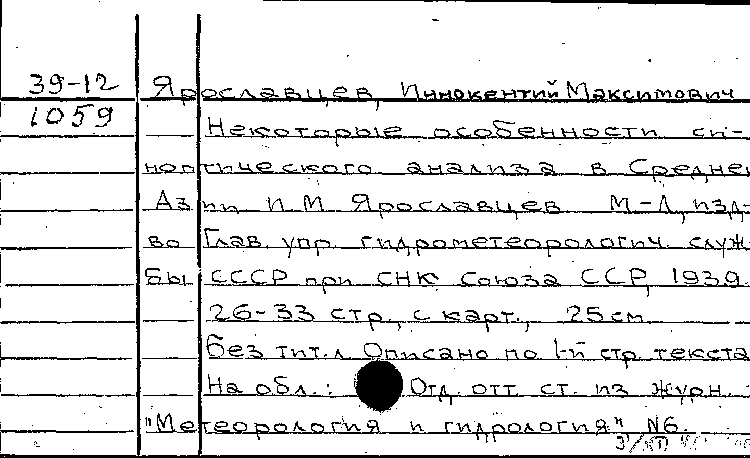 39-12
1059
Ярославцев, Иннокентий Максимович
Некоторые особенности си-
ноптического анализа в Средней
Азии И.М Ярославцев М-Л, изд-
во Глав. упр. гидрометеорологич. служ-
бы СССР при СНК Союза ССР, 1939.
26-33 стр., с карт., 25 см
Без тит.л Описано по 1-й стр текста
На обл.: Отд. отт. ст. из журн.
"Метеорология и гидрология" N6.